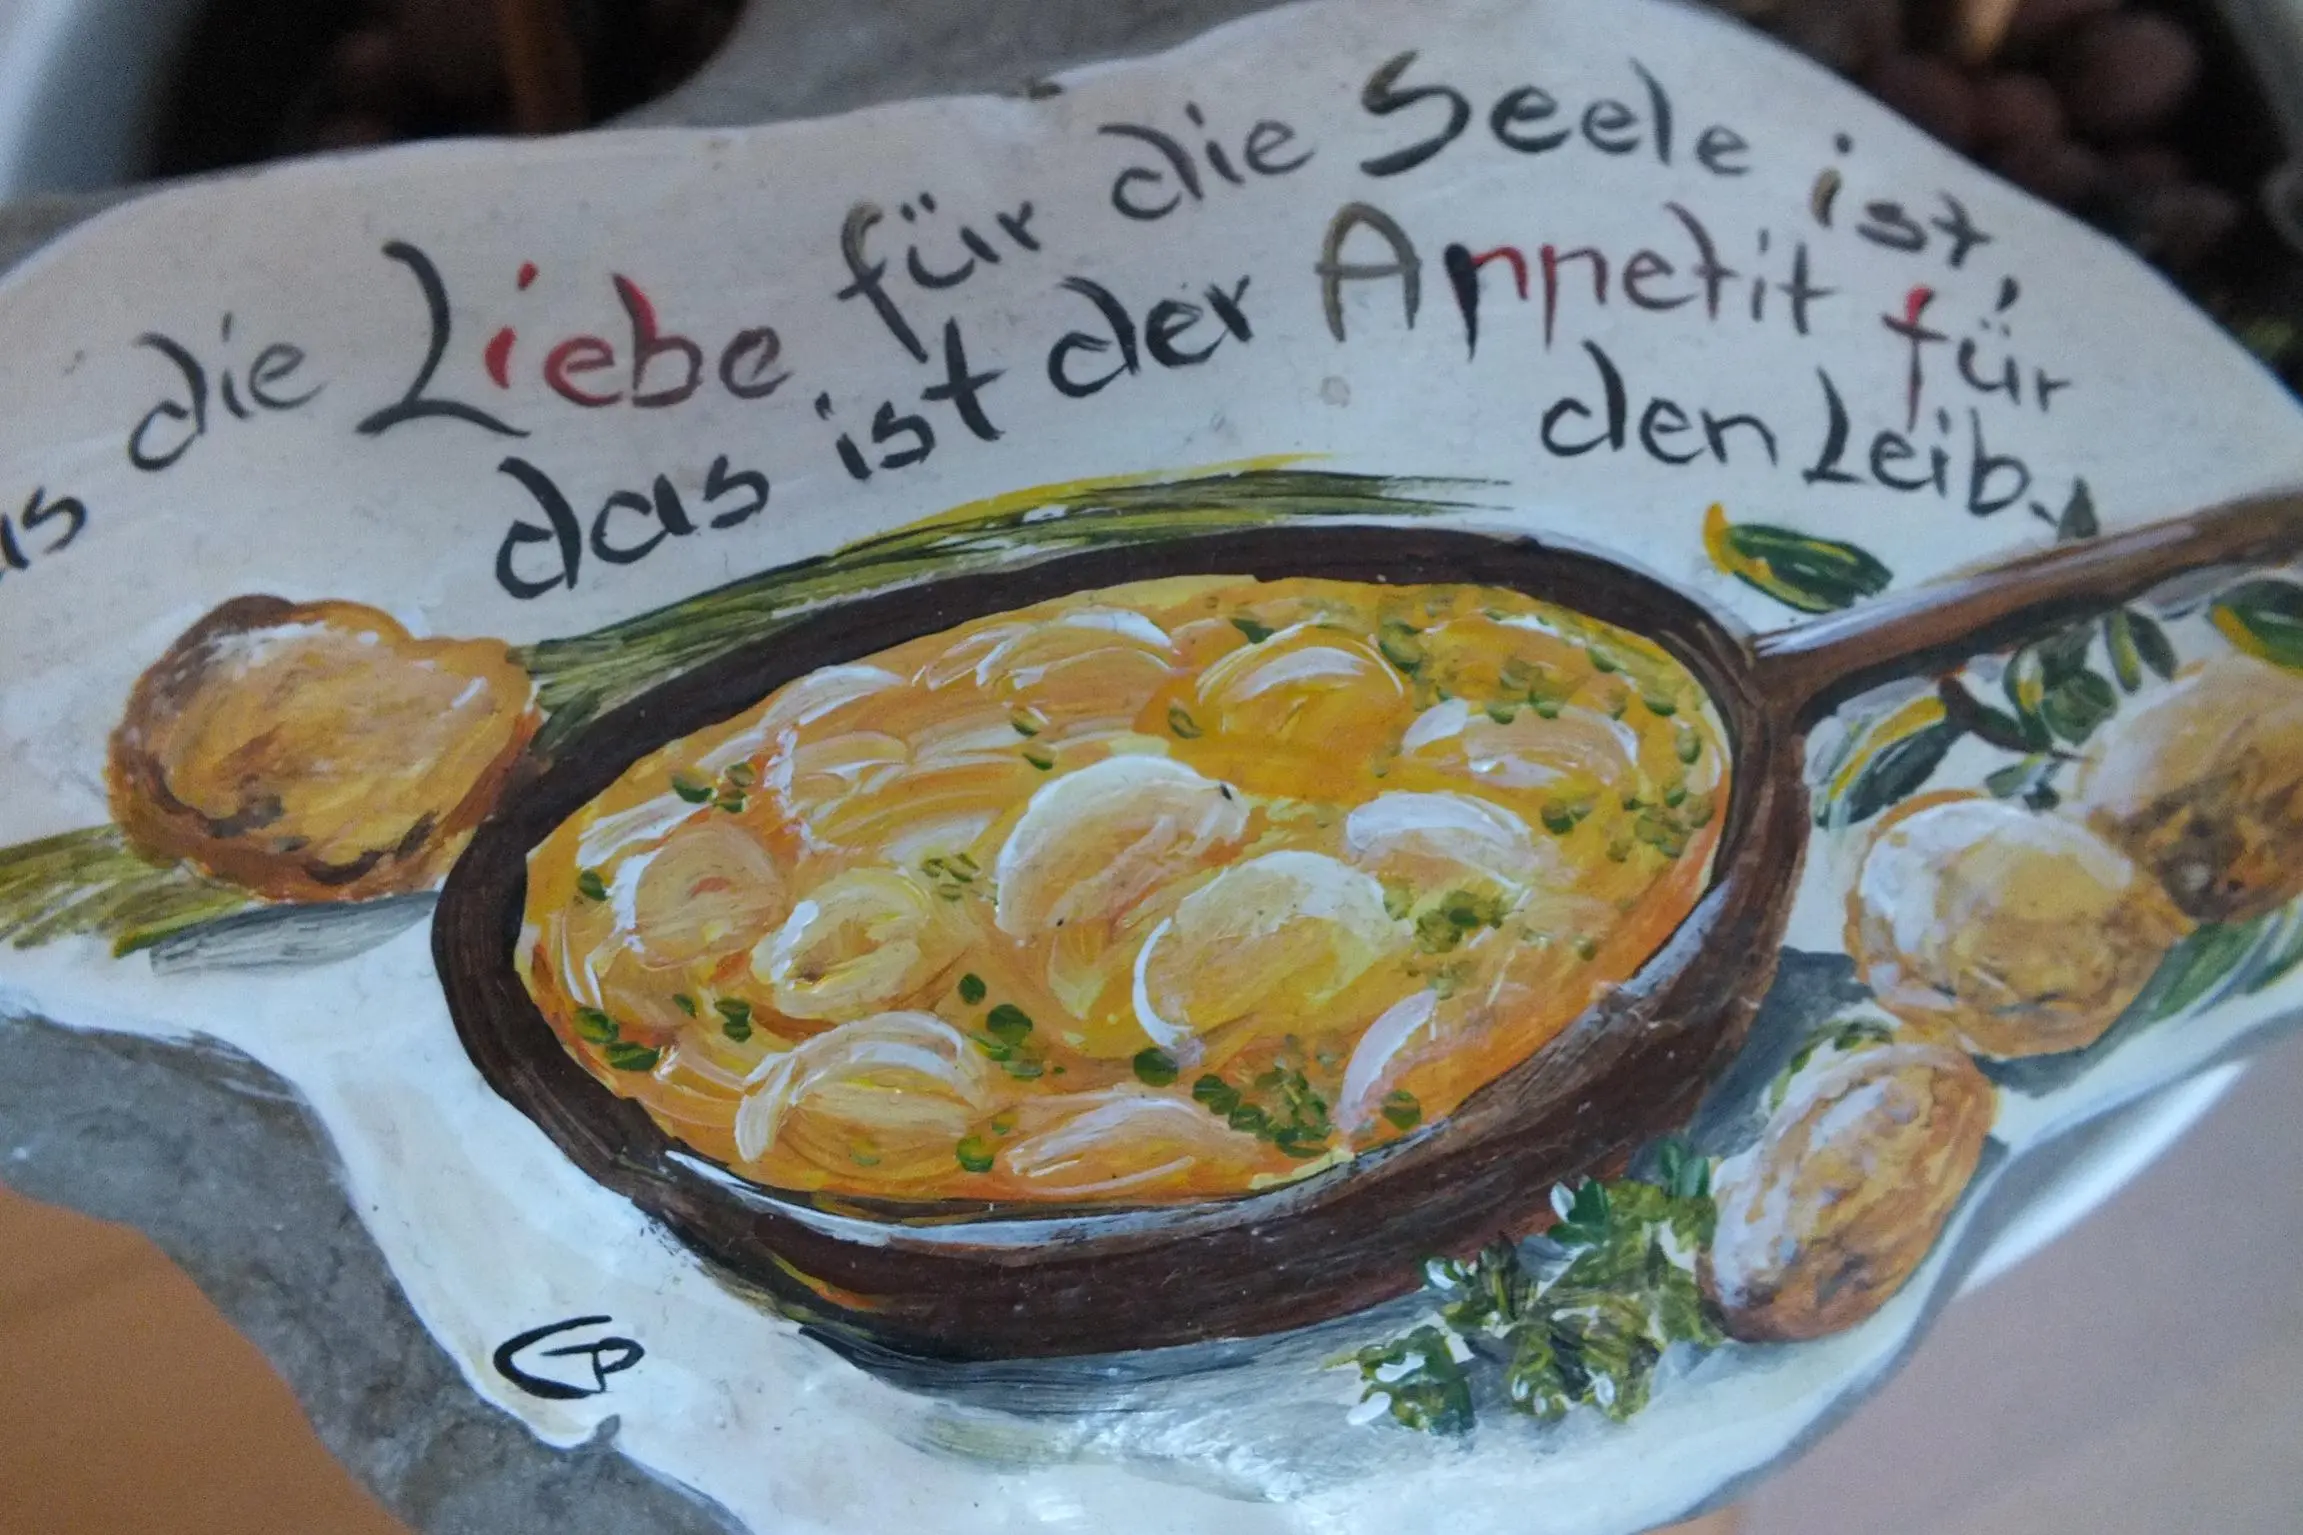 as die Liebe für die Seele ist,
das ist der Appetit für
den Leib.